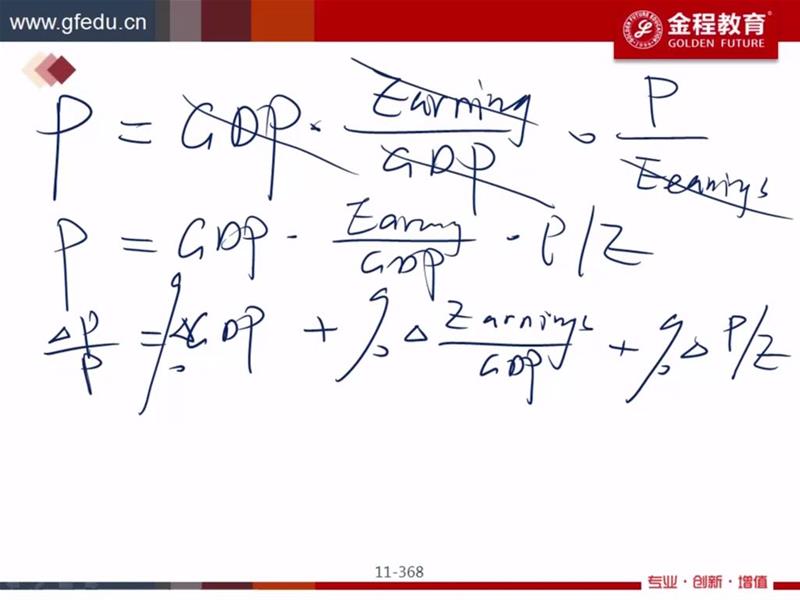 www.gfedu.cn
金程教育
GOLDEN FUTURE
P = GDP · Earning/GDP · P/Eearnigs
P = GDP · Earning/GDP · P/E
ΔP/P = %ΔGDP + %Δ Earnings/GDP + %Δ P/E
11-368
专业·创新·增值